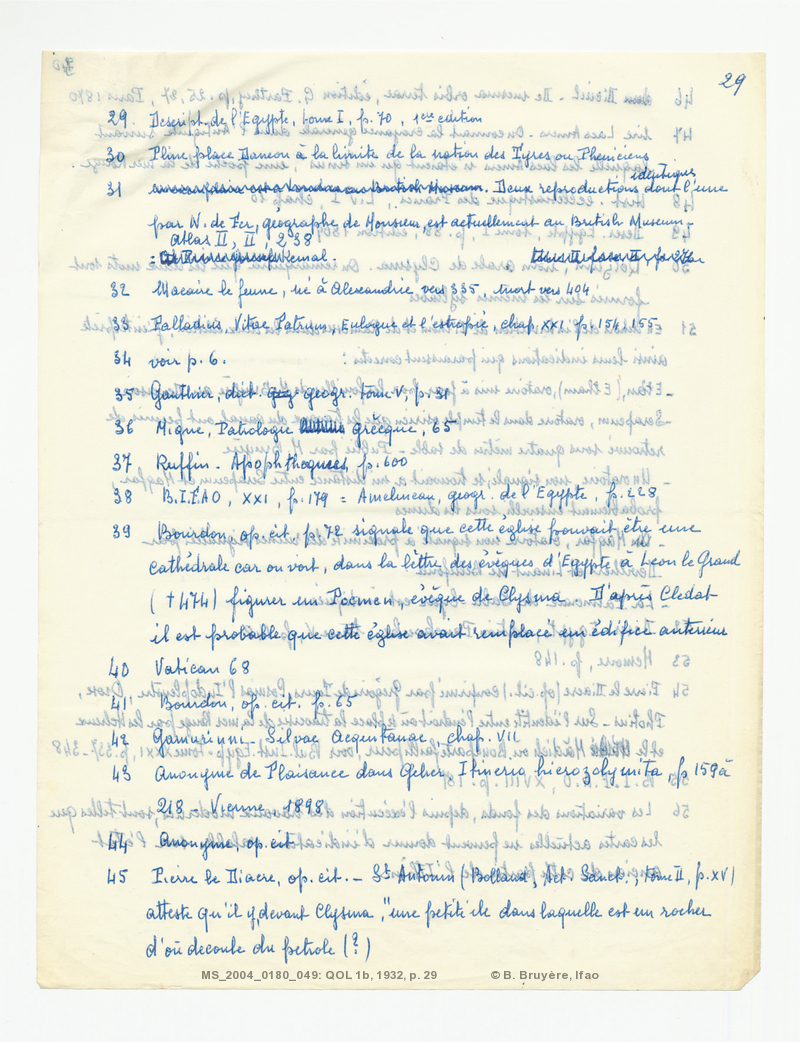 29
29. Descript. de l'Egypte, tome I, p. 70, 1ere edition
30 Pline place Daneon à la limite de la nation des Tyres ou Pheniciens
identiques
31 Deux reproductions dont l'une
par N. de Fer, géographe de Monsieur, est actuellement au British Museum -
atlas II, II, 238
Kemal.
32 Macaire le jeune, né à Alexandrie vers 335, mort vers 404
33 Palladius, Vitae Patrum, Eulogus et l'estropié, chap. XXI p. 154, 155
34 voir p. 6.
35 Gauthier, dict. geogr. tome V, p. 31
36 Migne, Patrologie grècque, 65
37 Ruffin. Apophthegmes, p. 600
38 B.I.F.AO, XXI, p. 179 = Amelineau, geogr. de l'Egypte, p. 228
39 Bourdon, op. cit. p. 72 signale que cette église pouvait être une
cathédrale car on voit, dans la lettre des évêques d'Egypte à Léon le Grand
(†474) figurer un Poemen, évêque de Clysma. D'après Cledat
il est probable que cette église avait remplacé un édifice anterieur
40 Vatican 68
41 Bourdon, op. cit. p. 65
42 Gamurrini - Silvae Acqentanae, chap. VII
43 Anonyme de Plaisance dans Geher, Itineria hierozolymita, p. 159 à
218 - Vienne - 1898
44 Anonyme op. cit.
45 Pierre le Diacre, op. cit. - St Antonin (Bolland, Act. Sanct., tome II, p. XV)
atteste qu'il y, devant Clysma, "une petite ile dans laquelle est un rocher
d'où decoule du petrole (?)
MS_2004_0180_049: QOL 1b, 1932, p. 29 © B. Bruyère, Ifao